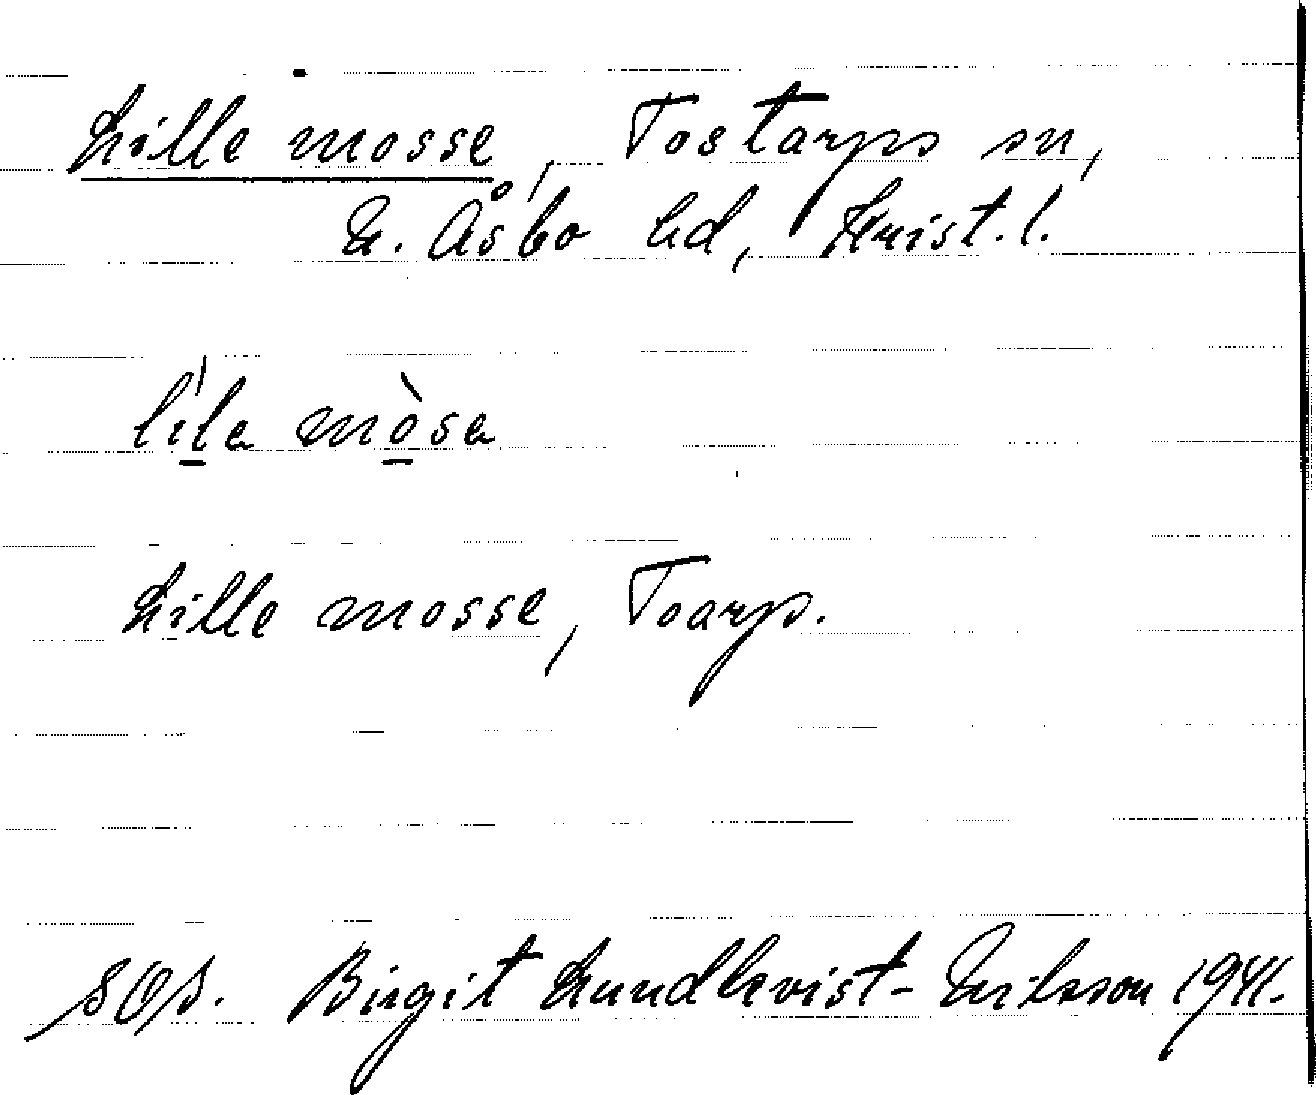 Lille mosse, Tostarps sn,
N. Åsbo hd, Krist. l.
lila mòsa
Lille mosse, Toarp.
SOA. Birgit Lundkvist-Nilsson 1941.